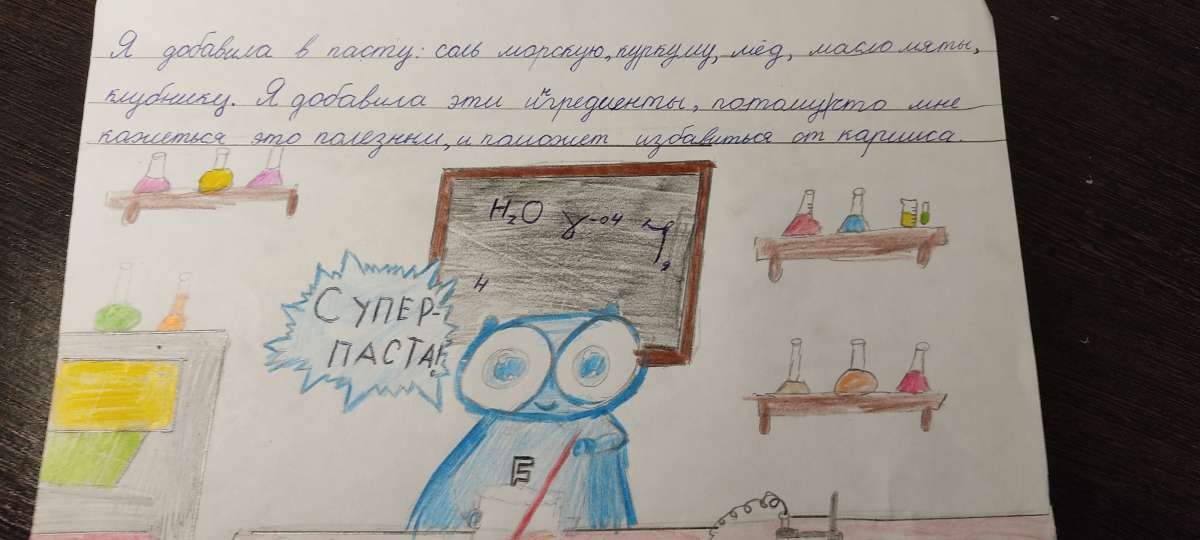 Я добавила в пасту: соль морскую, куркуму, мёд, масло мяты,
клубнику. Я добавила эти ингредиенты, потому что мне
кажеться это полезним, и поможет избавиться от кариеса.
H₂O
H
СУПЕР-
ПАСТА!
F